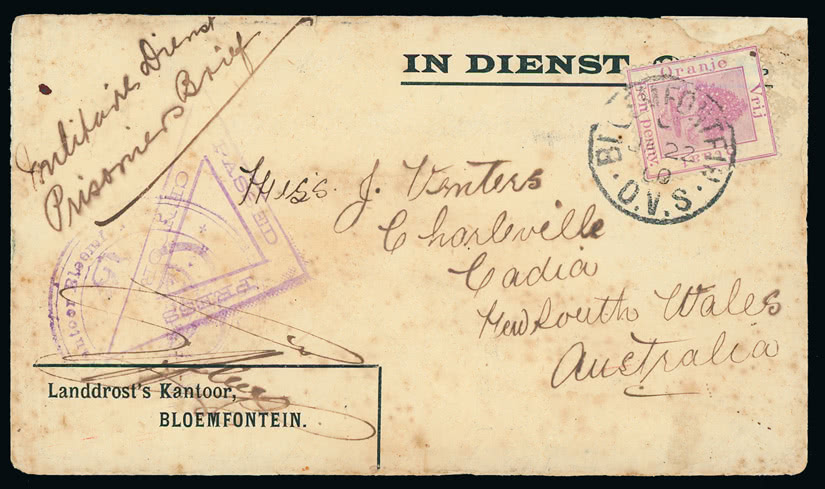 Militaire Dienst
Prisoners Brief
IN DIENST
Oranje
Vrij
een penny
BLOEMFONTEIN
22
O.V.S.
PASSED
PRESS
Miss J. Venters
Charleville
Cadia
New South Wales
Australia
Landdrost's Kantoor,
BLOEMFONTEIN.